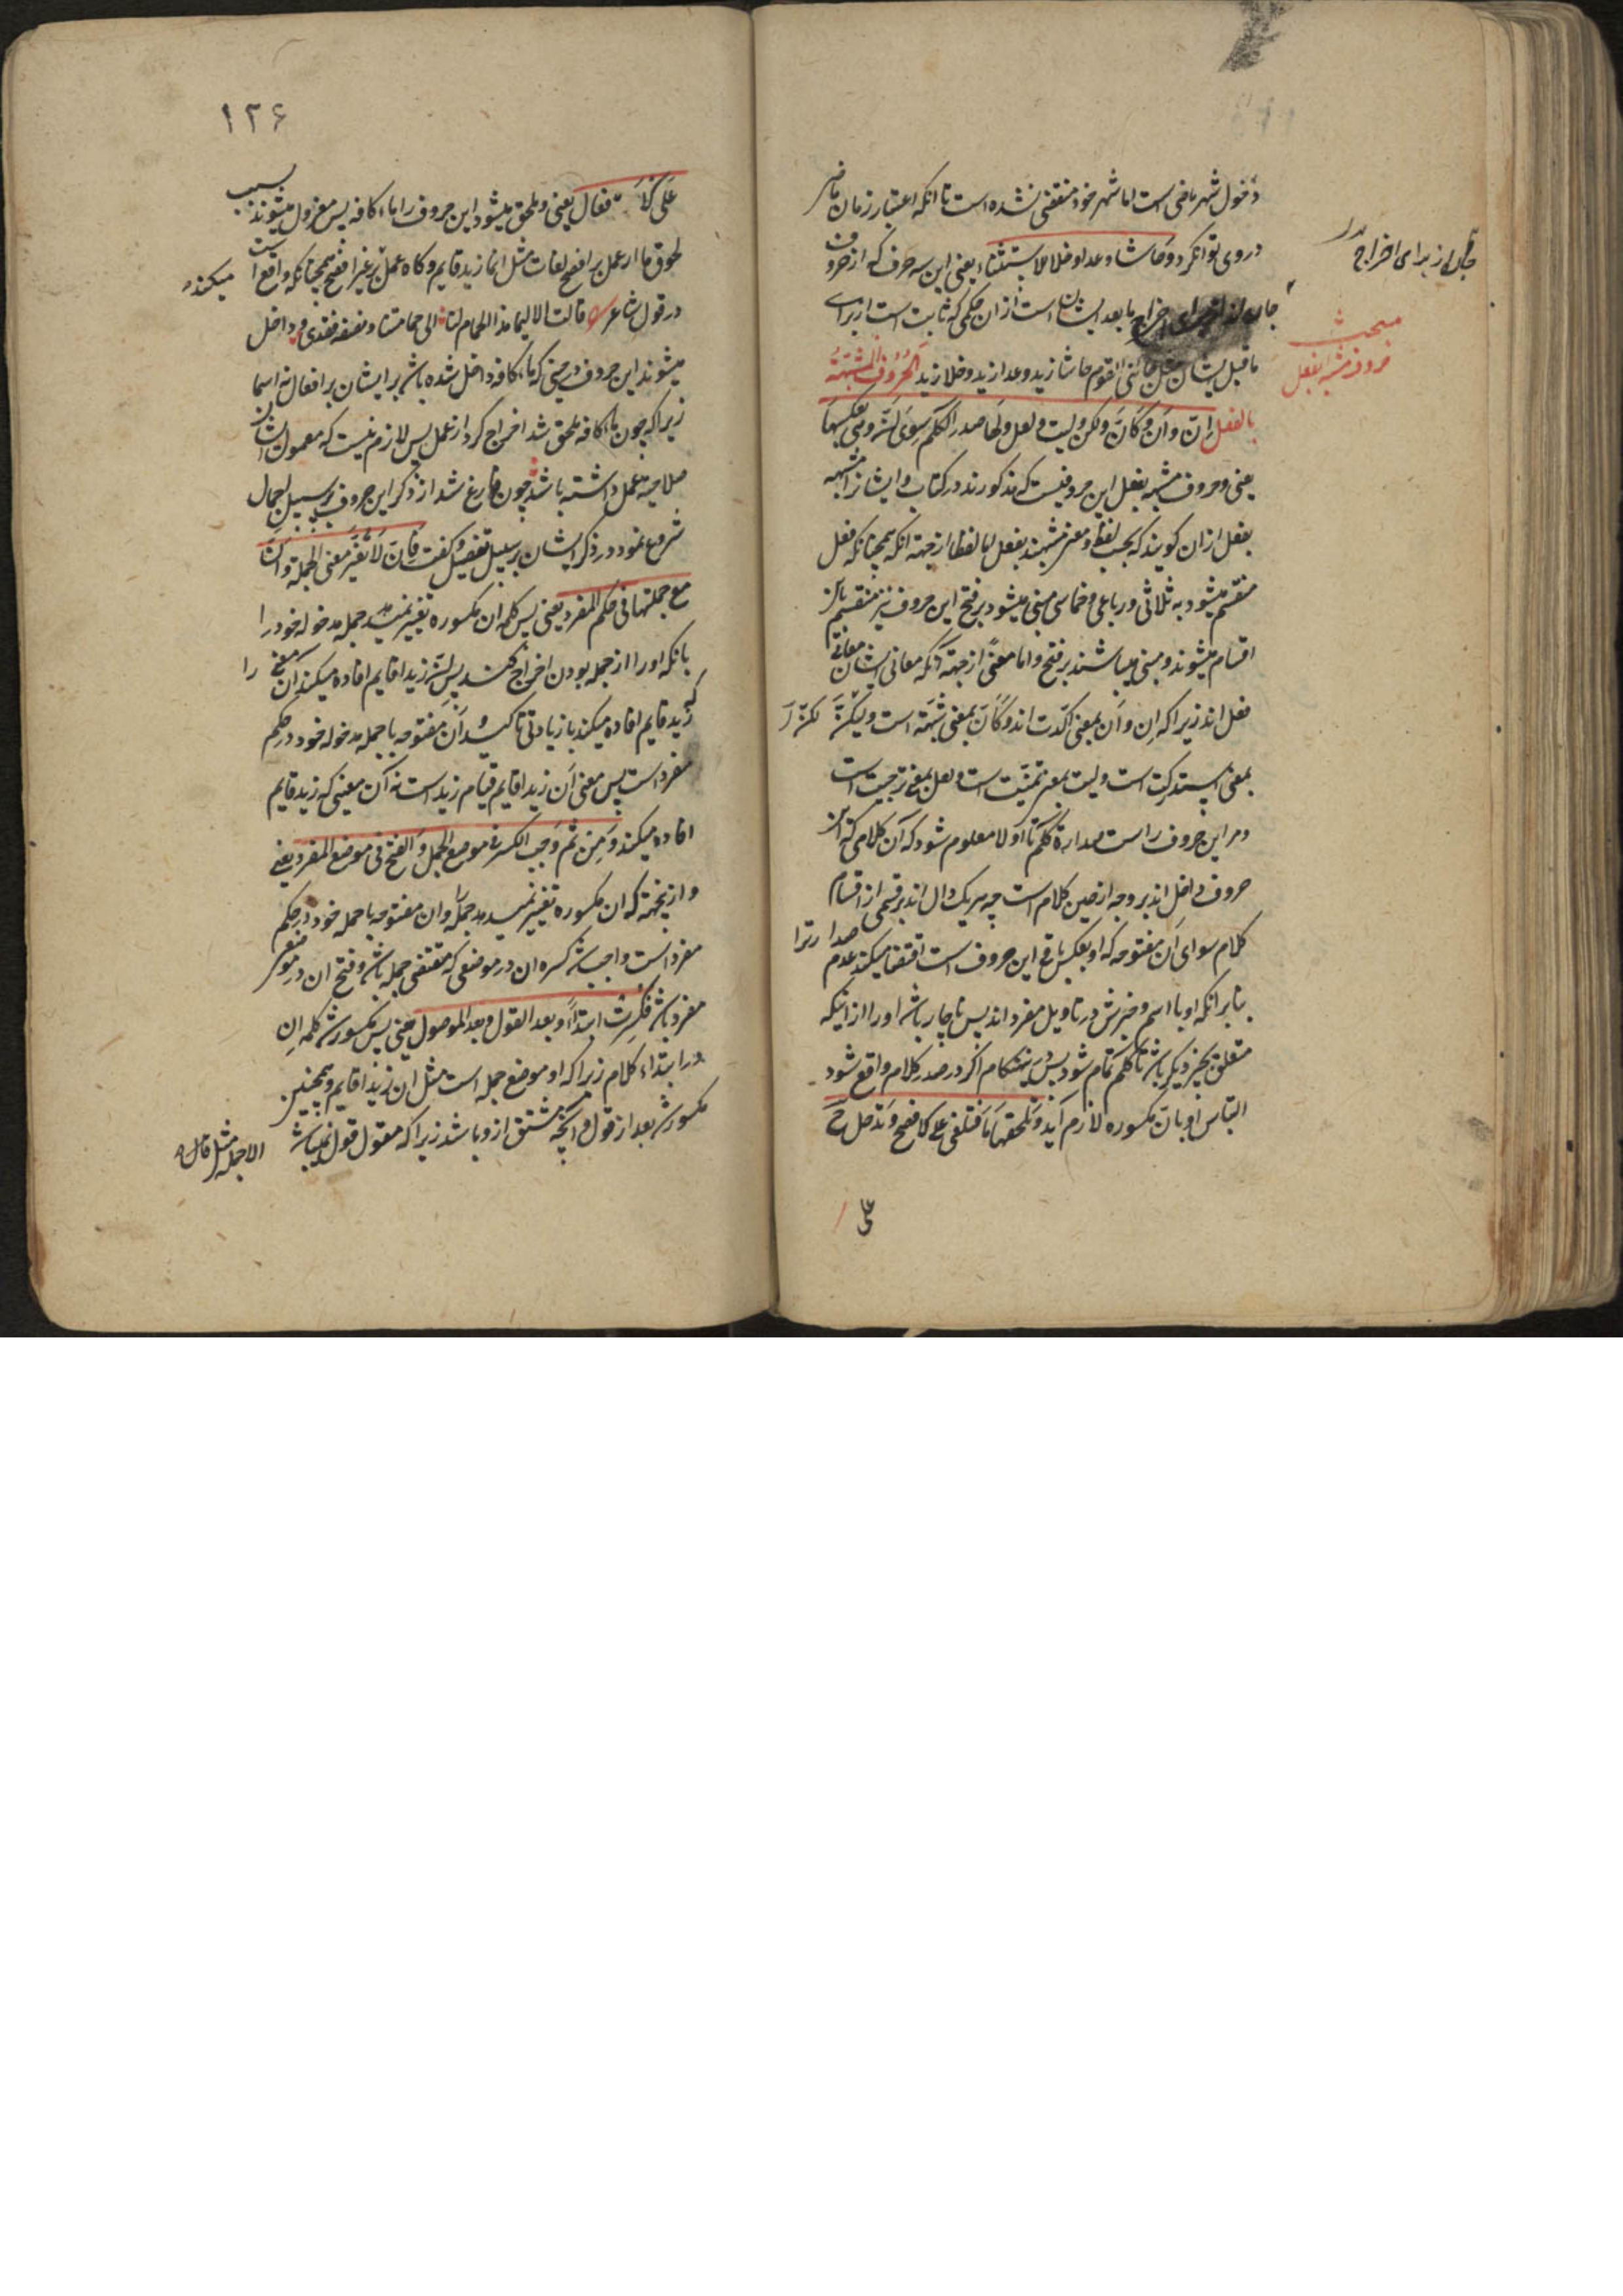 دخول شهر ماضی است اما شهر خود منقضی نشده است تا انکه اعتبار زمان ماضی
در وی توانکرد وحاشا وعدا وخلا للاستثناء یعنی این سه حرف که از حروف
جاره اند از برای اخراج ما بعد ایشان است ازان حکمی که ثابت است از برای
ما قبل ایشان مثل جائنی القوم حاشا زید وعدا زید وخلا زید الحروف المشبهة
بالفعل اِنّ واَنّ وکَاَنّ ولکن ولیت ولعل ولها صدر الکلم سوی اَنّ وهی بعکسها
یعنی وحروف مشبهه بفعل این حروفیست که مذکورند در کتاب وایشانرا مشبهه
بفعل ازان کویند که بحسب لفظ ومعنی مشبهند بفعل اما لفظا از جهة انکه همچنانکه فعل
منقسم میشود به ثلاثی ورباعی وخماسی مبنی میشود بر فتح این حروف نیز منقسم باین
اقسام میشوند ومبنی میباشند بر فتح واما معنًی از جهة آنکه معانی ایشان معانی
فعل اند زیرا که اِن واَن بمعنی اکّدت اند وکَاَنّ بمعنی شبّهت است ولکنّ
بمعنی استدرکت است ولیت بمعنی تمنّیت است ولعل بمعنی ترجیت است
ومر این حروف راست صدارة کلم تا اولا معلوم شود که آن کلامی که این
حروف داخل اند بر وجه از حین کلام است چه هر یک دال اند بر قسمی از اقسام
کلام سوای اَن مفتوحه که او بعکس باقی این حروف است اقتضا میکند عدم صدارترا
بنابر انکه او با اسم وخبرش در تاویل مفرد اند پس ناچار باشد او را از اینکه
متعلق بچیز دیکر باشد تا کلم تمام شود پس درین هنکام اکر در صدر کلام واقع شود
التباس او باِنّ مکسوره لازم آید وتلحقها ما فتلغی علی الافصح وتدخل ح
علی
جاره اند از برای اخراج
مبحث
حروف مشبه بفعل
۱۲۶
علی الافعال یعنی وملحق میشود این حروف را ماء کافه پس معزول میشوند بسبب
لحوق ما از عمل بر افصح لغات مثل انما زید قایم وکاه عمل بر غیر افصح همچنانکه واقع است میکنند
در قول شاعر قالت الا لیتما هذا الحمام لنا الی حمامتنا ونصفه فقد وداخل
میشوند این حروف در حینی که ماء کافه داخل شده باشد بر ایشان بر افعال نه اسما
زیرا که چون ماء کافه ملحق شد اخراج کرد از عمل پس لازم نیست که معمول ایشان
صلاحیة عمل داشته باشد چون فارغ شد از ذکر این حروف بر سبیل اجمال
شروع نمود در ذکر ایشان بر سبیل تفصیل وکفت فاِنّ لا تغیّر معنی الجملة واَنّ
مع جملتها فی حکم المفرد یعنی پس کلمه ان مکسوره تغییر نمیدهد جمله مدخوله خود را
بانکه او را از جمله بودن اخراج کند پس اِنّ زیدا قایم افاده میکند آن معنی را
که زید قایم افاده میکند با زیادتی تاکید واَنّ مفتوحه با جمله مدخوله خود در حکم
مفرد است پس معنی اَن زیدا قایم قیام زید است نه آن معنی که زید قایم
افاده میکند ومن ثم وجب الکسر فی موضع الجمل والفتح فی موضع المفرد یعنی
واز ینجهة که ان مکسوره تغییر نمیدهد جمله را وان مفتوحه با جمله خود در حکم
مفرد است واجب شد کسره ان در موضعی که مقتضی جمله باشد وفتح ان در موضع
مفرد باشد فکسرت ابتداءً وبعد القول وبعد الموصول یعنی پس مکسور شد کلمه اِن
در ابتداء کلام زیرا که او موضع جمله است مثل ان زیدا قایم وهمچنین
مکسور شد بعد از قول وآنچه مشتق ازو باشد زیرا که مقول قول نمیباشد الا جمله مثل قال